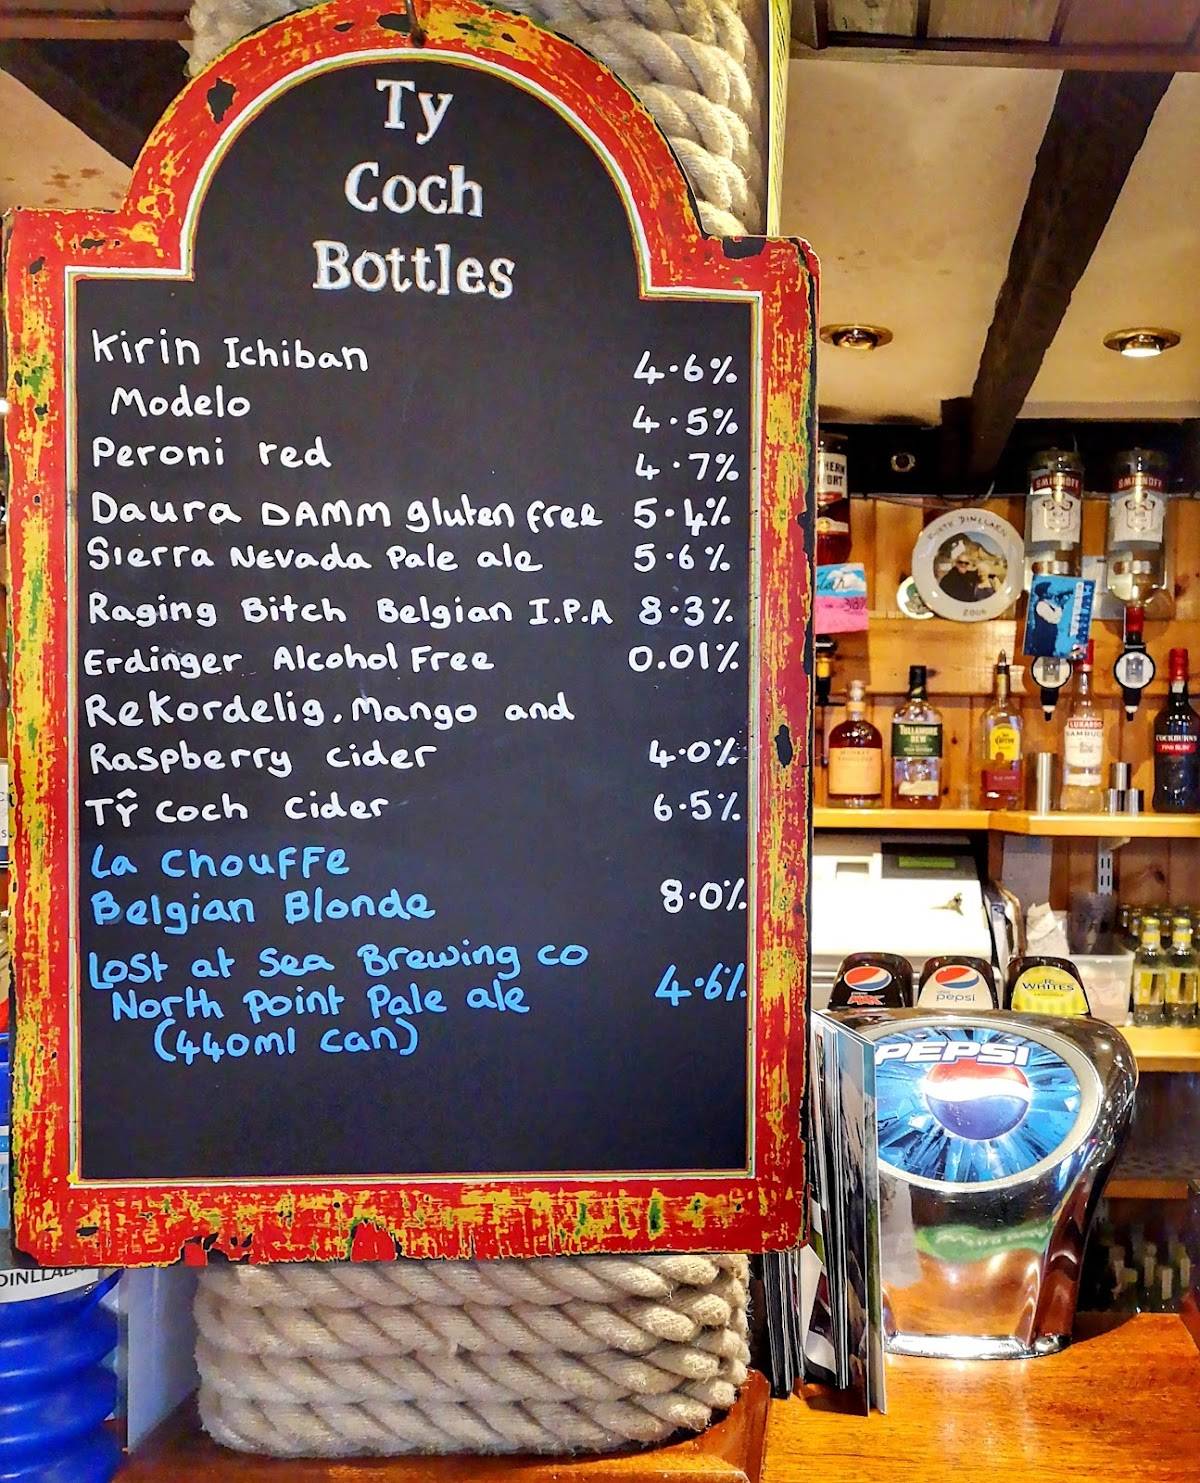 Ty
Coch
Bottles
Kirin Ichiban 4.6%
Modelo 4.5%
Peroni red 4.7%
Daura DAMM gluten free 5.4%
Sierra Nevada Pale ale 5.6%
Raging Bitch Belgian I.P.A 8.3%
Erdinger Alcohol Free 0.01%
Rekordelig, Mango and
Raspberry cider 4.0%
Tŷ Coch Cider 6.5%
La Chouffe
Belgian Blonde 8.0%
Lost at Sea Brewing co
North Point Pale ale 4.6%
(440ml can)
SMIRNOFF
SMIRNOFF
PORTH DINLLAEN
2006
TULLAMORE
DEW
LUXARDO
SAMBUCA
COCKBURN'S
MAX
pepsi
WHITES
PEPSI
DINLLAE